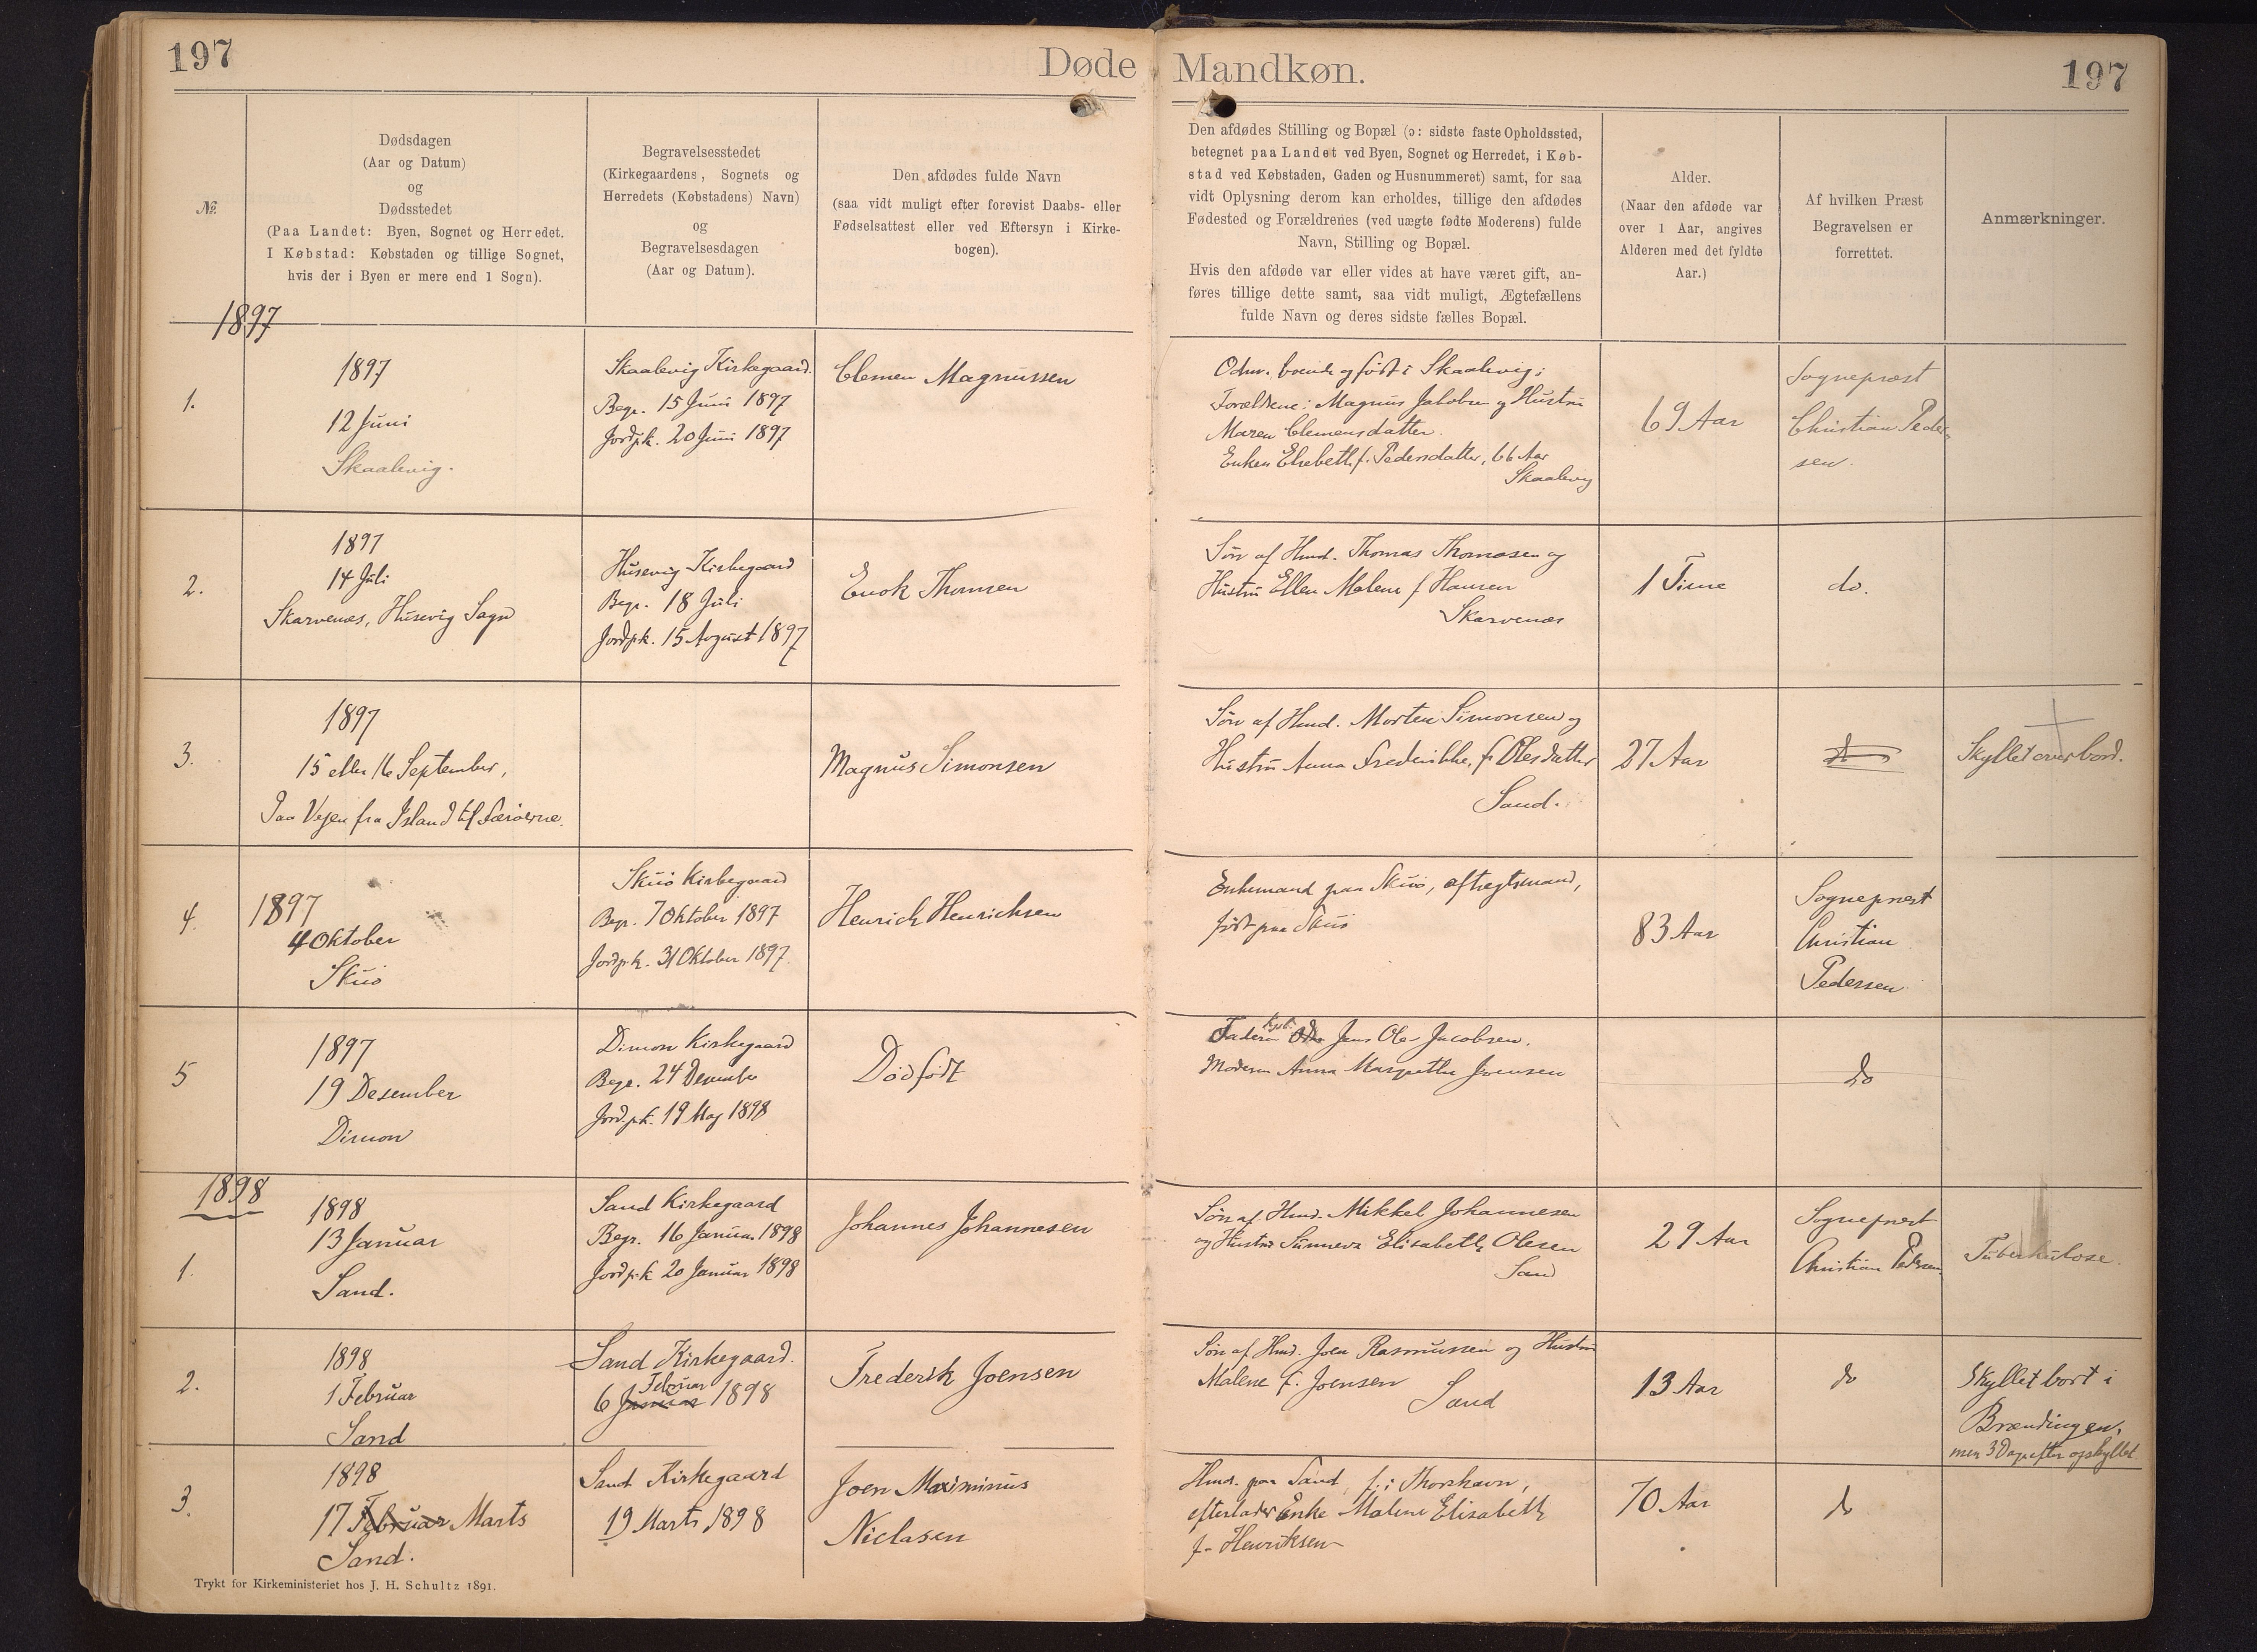 197
Døde Mandkøn.
197
№
Dødsdagen
(Aar og Datum)
og
Dødsstedet
(Paa Landet: Byen, Sognet og Herredet.
I Købstad: Købstaden og tillige Sognet,
hvis der i Byen er mere end 1 Sogn).
Begravelsesstedet
(Kirkegaardens, Sognets og
Herredets (Købstadens) Navn)
og
Begravelsesdagen
(Aar og Datum).
Den afdødes fulde Navn
(saa vidt muligt efter forevist Daabs- eller
Fødselsattest eller ved Eftersyn i Kirke-
bogen).
Den afdødes Stilling og Bopæl (ɔ: sidste faste Opholdssted,
betegnet paa Landet ved Byen, Sognet og Herredet, i Køb-
stad ved Købstaden, Gaden og Husnummeret) samt, for saa
vidt Oplysning derom kan erholdes, tillige den afdødes
Fødested og Forældrenes (ved uægte fødte Moderens) fulde
Navn, Stilling og Bopæl.
Hvis den afdøde var eller vides at have været gift, an-
føres tillige dette samt, saa vidt muligt, Ægtefællens
fulde Navn og deres sidste fælles Bopæl.
Alder.
(Naar den afdøde var
over 1 Aar, angives
Alderen med det fyldte
Aar.)
Af hvilken Præst
Begravelsen er
forrettet.
Anmærkninger.
1897
1.
1897
12 Juni
Skaalevig.
Skaalevig Kirkegaard.
Begr. 15 Juni 1897
Jordpk. 20 Juni 1897
Clemen Magnussen
Odm. boende og født i Skaalevig;
Forældrene: Magnus Jakobsen og Hustru
Maren Clemensdatter.
Enken Elsebeth f. Pedersdatter, 66 Aar
Skaalevig
69 Aar
Sognepræst
Christian Peder-
sen.
2.
1897
14 Juli
Skarvenæs, Husevig Sogn
Husevig Kirkegaard
Begr. 18 Juli
Jordpk. 15 August 1897
Enok Thomsen
Søn af Hmd. Thomas Thomasen og
Hustru Ellen Malene f Hansen
Skarvenæs
1 Time
do.
3.
1897
15 eller 16 September,
Paa Vejen fra Island til Færøerne.
Magnus Simonsen
Søn af Hmd. Morten Simonsen og
Hustru Anna Frederikke, f. Olesdatter
Sand.
27 Aar
do
Skyllet overbord.
4.
1897
4 Oktober
Skuø
Skuø Kirkegaard
Begr. 7 Oktober 1897
Jordpk. 31 Oktober 1897.
Henrich Henrichsen
Enkemand paa Skuø, aftægtsmand,
født paa Skuø
83 Aar
Sognepræst
Christian
Pedersen
5
1897
19 Desember
Dimon
Dimon Kirkegaard
Begr. 24 Desember
Jordpk. 19 Maj 1898
Dødfødt
Faderen Jens Ole Jacobsen.
Moderen Anna Margrethe Joensen
do
1898
1.
1898
13 Januar
Sand.
Sand Kirkegaard
Begr. 16 Januar 1898
Jordpk 20 Januar 1898
Johannes Johannesen
Søn af Hmd. Mikkel Johannesen
og Hustru Sunneva Elisabeth Olesen
Sand
29 Aar
Sognepræst
Christian Pedersen.
Tuberkulose.
2.
1898
1 Februar
Sand
Sand Kirkegaard.
Februar
6 Januar 1898
Frederik Joensen
Søn af Hmd. Joen Rasmussen og Hustru
Malene f. Joensen
Sand
13 Aar
do
Skyllet bort i
Brændingen,
men 3 Dage efter opskyllet
3.
1898
17 Februar Marts
Sand.
Sand Kirkegaard
19 Marts 1898
Joen Maximinus
Niclasen
Hmd. paa Sand, f. i Thorshavn,
efterlader Enke Malene Elisabeth
f. Henriksen
70 Aar
do
Trykt for Kirkeministeriet hos J. H. Schultz 1891.